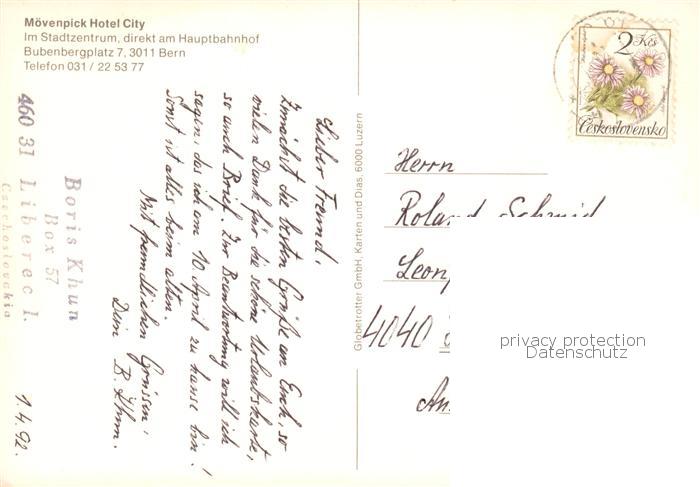 Mövenpick Hotel City
Im Stadtzentrum, direkt am Hauptbahnhof
Bubenbergplatz 7, 3011 Bern
Telefon 031 / 22 53 77
Lieber Freund,
Zunächst die besten Grüße an Euch, so
vielen Dank für die schön Urlaubskarte,
so auch Brief. Zur Beantwortung will ich
sagen, das ich am 10. April zu hause bin!
Somst ist alles beim alten.
Mit freundlichen Grüssen,
Dein B. Khun.
1.4.92.
Boris Khun
Box 57
460 31 Liberec 1.
Czechoslovakia
Globetrotter GmbH, Karten und Dias, 6000 Luzern
2 Kčs
Československo
Herrn
Roland Schmid
4040
privacy protection
Datenschutz